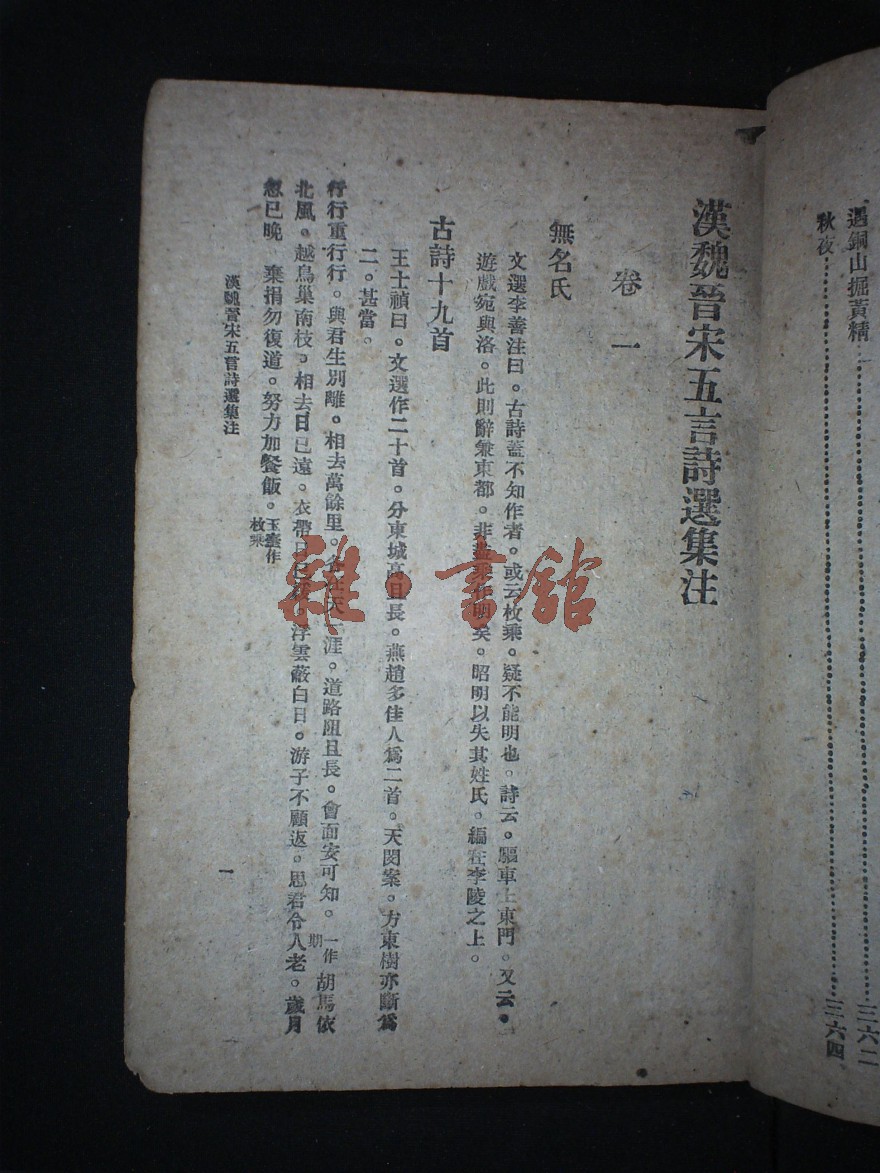 過銅山掘黃精……三六二
秋夜……三六四
漢魏晉宋五言詩選集注
卷一
無名氏
文選李善注曰。古詩蓋不知作者。或云枚乘。疑不能明也。詩云。驅車上東門。又云。
遊戲宛與洛。此則辭兼東都。非盡乘作明矣。昭明以失其姓氏。編在李陵之上。
古詩十九首
王士禎曰。文選作二十首。分東城高且長。燕趙多佳人爲二首。天閔案。方東樹亦斷爲
二。甚當。
行行重行行。與君生別離。相去萬餘里。各在天一涯。道路阻且長。會面安可知。一作期胡馬依
北風。越鳥巢南枝。相去日已遠。衣帶日已緩。浮雲蔽白日。游子不顧返。思君令人老。歲月
忽已晚 棄捐勿復道。努力加餐飯。玉臺作枚乘
漢魏晉宋五言詩選集注
一
雜·書館